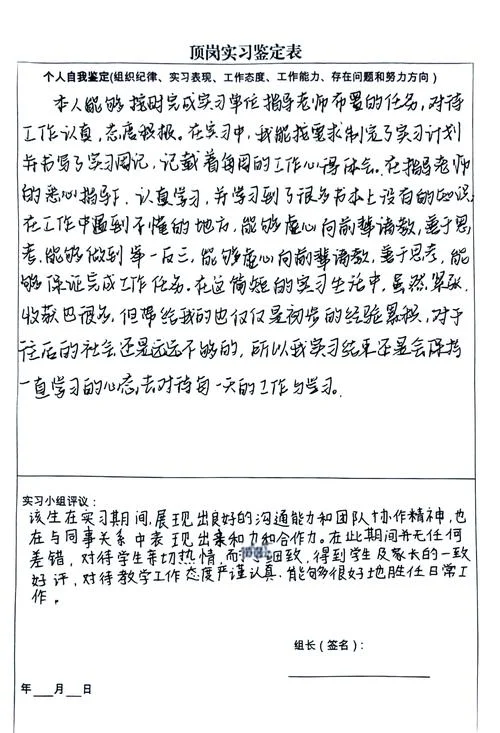 顶岗实习鉴定表
个人自我鉴定(组织纪律、实习表现、工作态度、工作能力、存在问题和努力方向)
本人能够按时完成实习单位指导老师布置的任务,对待
工作认真,态度积极。在实习中,我能按要求制定了实习计划
并书写了实习周记,记载着每周的工作心得体会。在指导老师
的悉心指导下,认真学习,并学习到了很多书本上没有的知识
在工作中遇到不懂的地方,能够虚心向前辈请教,善于思
考,能够做到举一反三,能够虚心向前辈请教,善于思考,能
够保证完成工作任务。在这简短的实习生活中,虽然紧张,
收获也很多,但带给我的也仅仅是初步的经验累积,对于
往后的社会还是远远不够的,所以我实习结束还是会保持
一直学习的心态去对待每一天的工作与学习。
实习小组评议:
该生在实习期间,展现出良好的沟通能力和团队协作精神,也
在与同事关系中表现出亲和力和合作力。在此期间并无任何
差错,对待学生亲切热情,而 细致,得到学生及家长的一致
好评,对待教学工作态度严谨认真,能够很好地胜任日常工
作。
组长(签名):
年___月___日